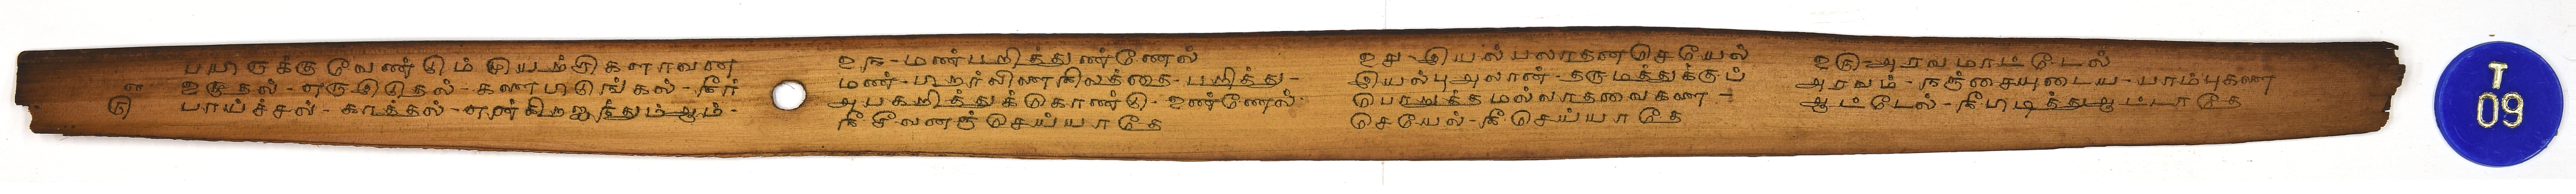 பயிருக்கு வேண்டும் முயற்சிகளாவன
உழுதல் - எருவிடுதல் - களைபிடுங்கல் - நீர்
பாய்ச்சல் - காத்தல் - என்கிற ஐந்தும் ஆம் -
௨௩ - மண்பறித்துண்ணேல்
மண் - பிறர்விளைநிலத்தை - பறித்து -
அபகறித்துக்கொண்டு - உண்ணேல்
நீ சீவனஞ் செய்யாதே
௨௪ - இயல்பலாதன செயேல்
இயல்பு அலான - தருமத்துக்குப்
பொறுத்தமல்லாதவைகளை -
செயேல் - நீ செய்யாதே
௨௫ - அரவமாட்டேல்
அரவம் - நஞ்சையுடைய - பாம்புகளை
ஆட்டேல் - நீ பிடித்து ஆட்டாதே
T
09